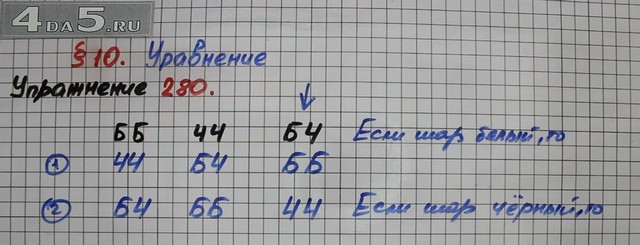 4DA5.RU
§ 10. Уравнение
Упражнение 280.
ББ ЧЧ БЧ Если шар белый, то
① ЧЧ БЧ ББ
② БЧ ББ ЧЧ Если шар чёрный, то